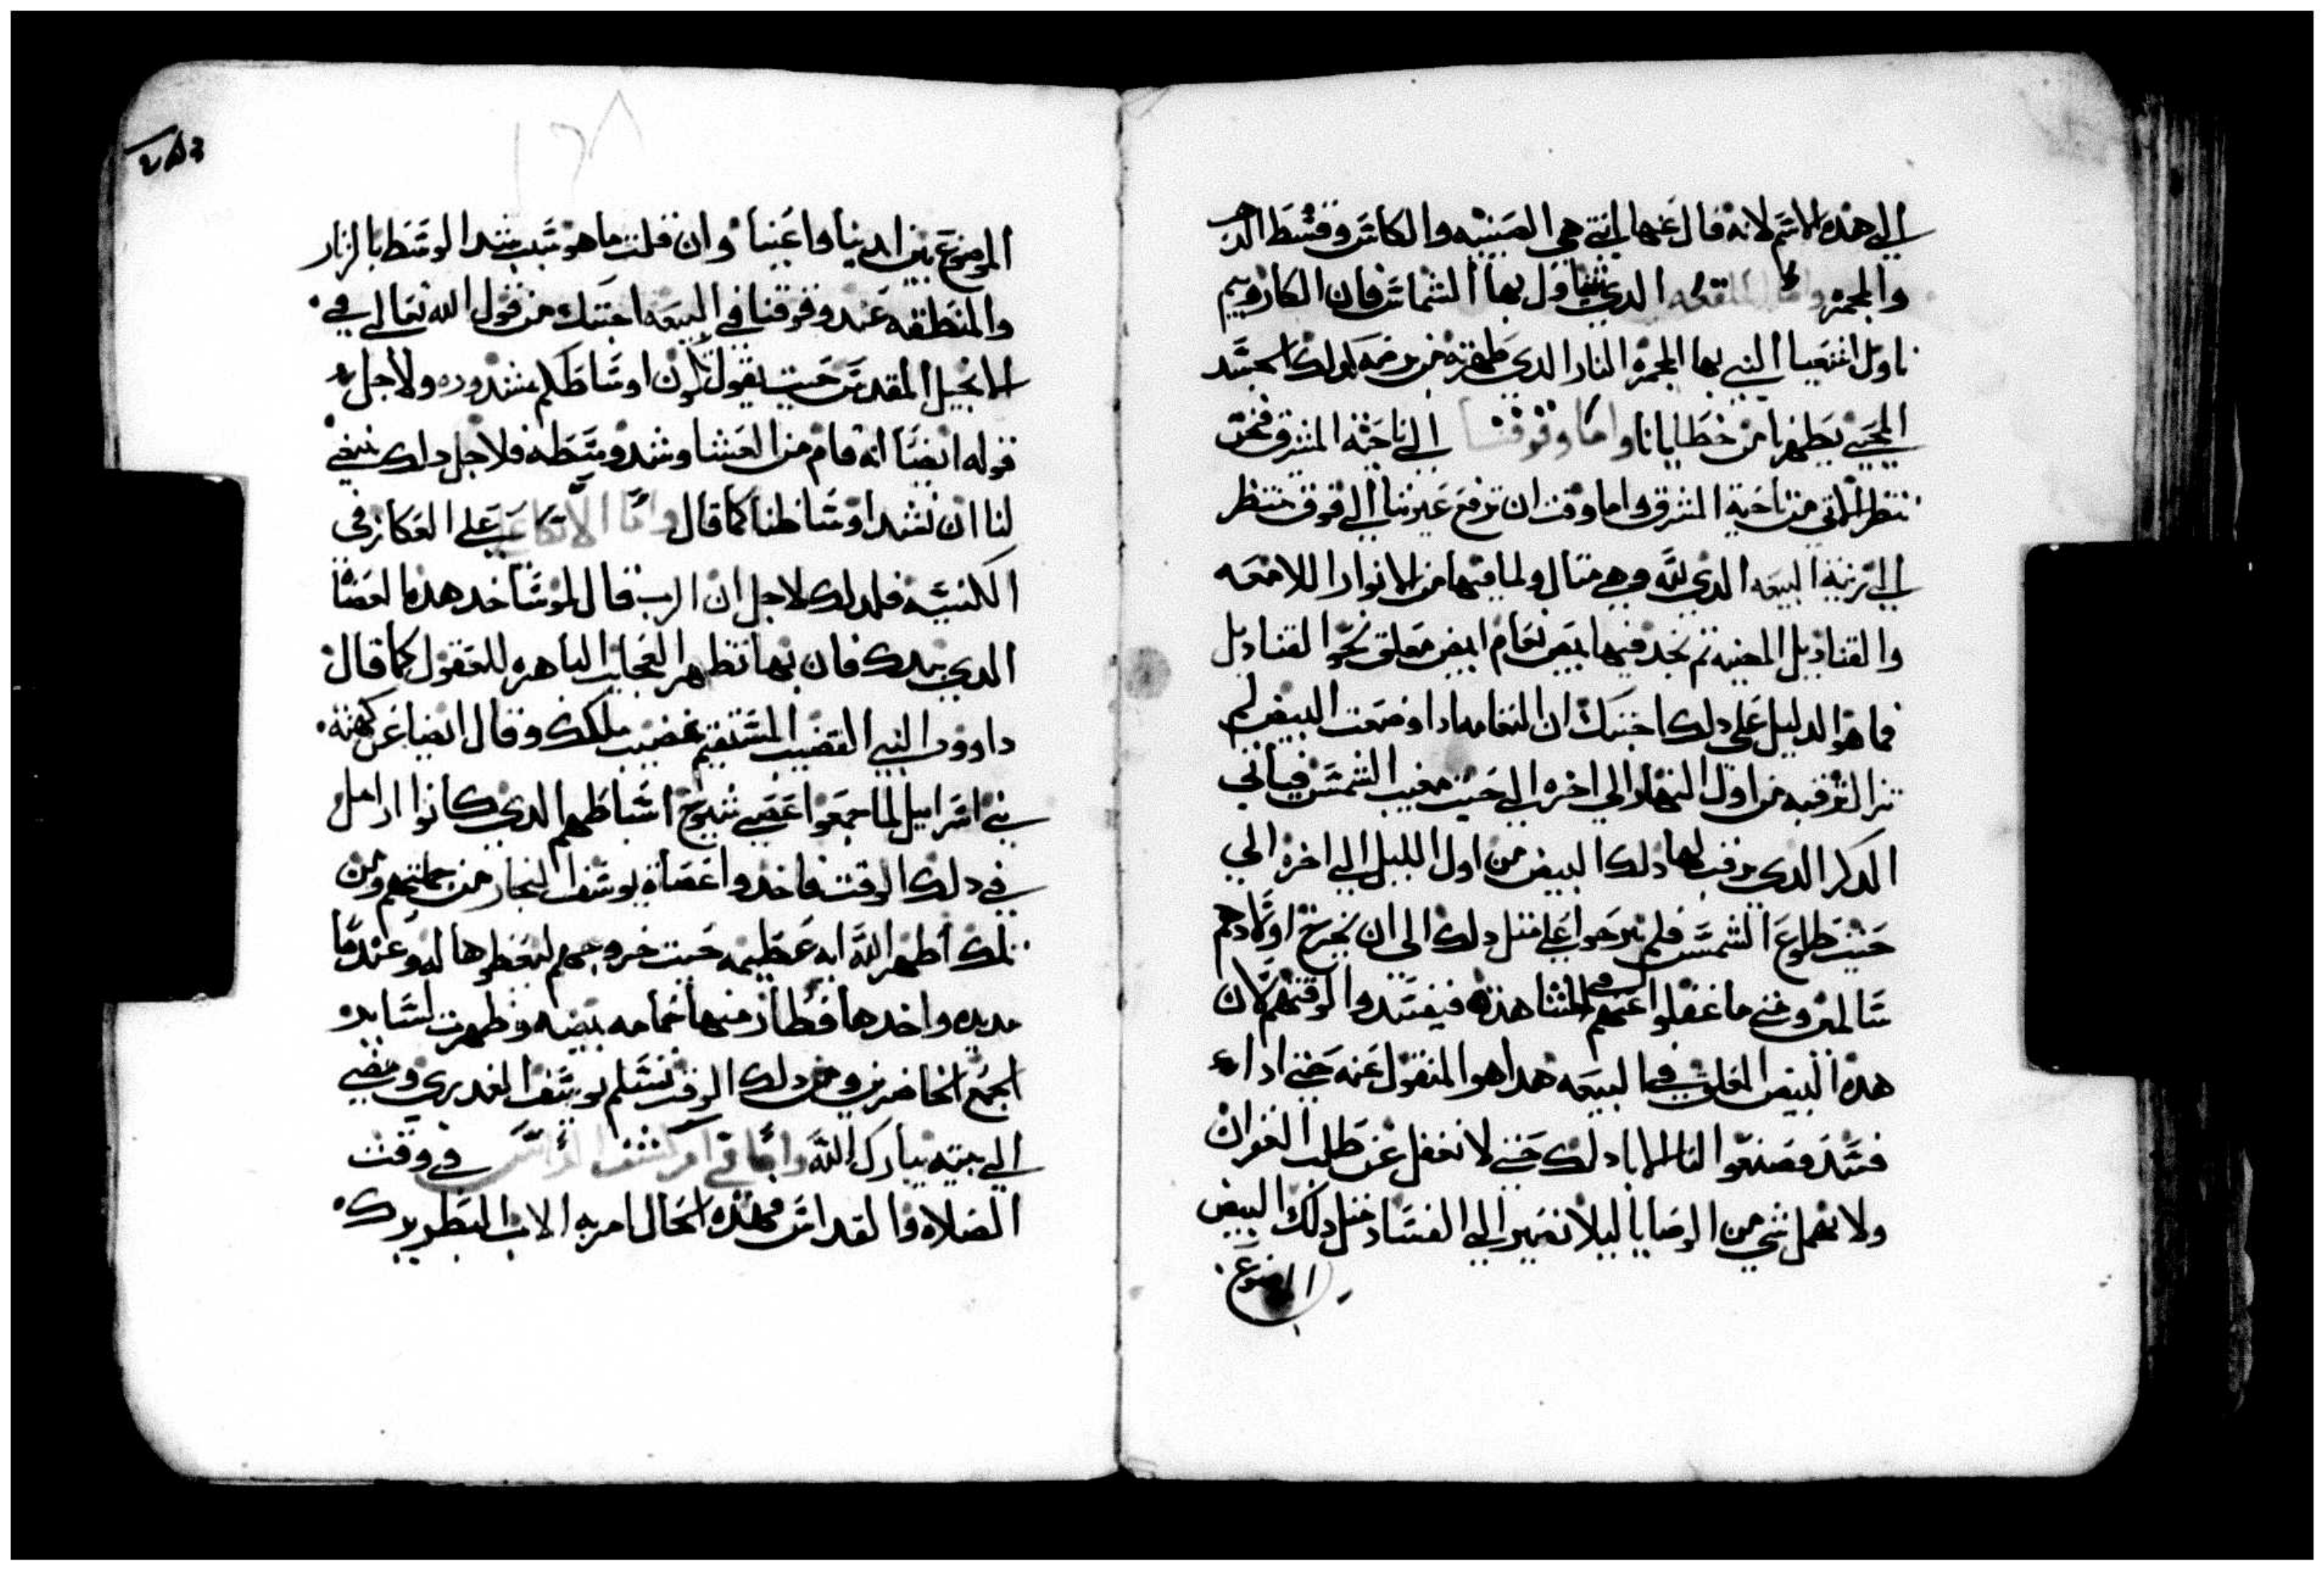 الي هذه الاسم لانه قال عنها انتي هي الصينيه والكاس وقسط الدهب
والمجمره واما الملقعه الدي يتناول بها الشماس فان الكاروبيم
ناول اشعيا النبي بها المجمرة النار الدي طهرته من برصه كدلك الجسد
المحيي يطهرنا من خطايانا واما وقوفنا الي ناحية المشرق فنحن
ننتظر الاتي من ناحية المشرق اما وقت ان نرفع عيوننا الي فوق ننتظر
الي زينة البيعه الدي لله وهي متال ولما فيها من الانوار اللامعه
والقناديل المضيه تم نجد فيها بيض نعام ابيض معلق نحو القناديل
فما هو الدليل علي دلك اجبتك ان النعامه ادا وضعت البيض لم
تزال ترقبه من اول النهار الي اخره الي حيت مغيب الشمس فياتي
الدكر الدي يرقب لها دلك البيض من اول الليل الي اخره الي
حيت طلوع الشمس فلم يبرحوا علي متل دلك الي ان يخرج اولادهم
سالمين ومتي ما غفلوا عنهم في المشاهده فيفسدوا لوقتهم لان
هدا البيض المعلق في البيعه هدا هو المنقول عنه حتي ادا
فسد فصنعوا لنا الابا دلك حتي لا نغفل عن طلب الغفران
ولا نهمل شي من الوصايا ليلا نصير الي الفساد متل دلك البيض
الموضوع
١٢٨
الموضوع بين ايدينا واعيننا وان قلت ما هو سبب شد الوسط بالزنار
والمنطقه عند وقوفنا في البيعه اجبتك من قول الله تعالي في
الانجيل المقدس حيت يقول ان اوساطكم مشدوده ولاجل
قوله ايضا انه قام من العشا وشد وسطه فلاجل دلك ينبغي
لنا ان نشد اوساطنا كما قال واما الاتكا علي العكاز في
الكنيسه فلدلك لاجل ان الرب قال لموسا خد هده العصا
الدي بيدك فان بها تظهر العجايب الباهره للعقول كما قال
داوود النبي القضيب المستقيم قضيب ملكك وقال ايضا عن كهنة
بني اسراييل لما جمعوا عصي شيوخ اسباطهم الدي كانوا ارامل
في دلك الوقت فاخدوا عصاة يوسف النجار من جملتهم ومن
تلك اظهر الله ايه عظيمه حيت خروجهم ليعطوها له وعندما
مد يده واخدها فطار منها حمامه بيضه وظهرت لساير
الجمع الحاضرين ومن دلك الوقت تسلم يوسف العدري ومضي
الي بيته يبارك الله واما في امر كشف الراس في وقت
الصلاه والقداس فهده الحال امر به الاب البطريرك